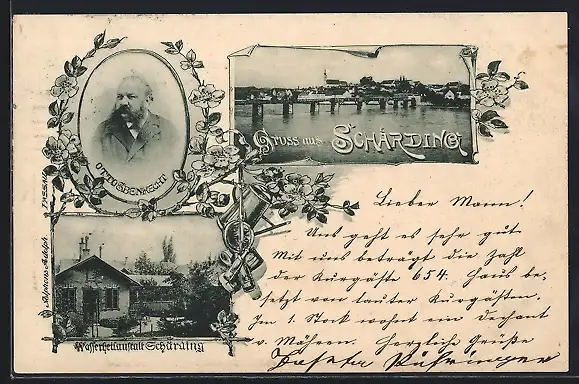 OTTO EBENHECHT
Gruss aus SCHÄRDING
Wasserheilanstalt Schärding
Lieber Mann!
Uns geht es sehr gut
Mit uns beträgt die Zahl
der Kurgäste 654. Haus be-
setzt von lauter Kurgästen.
Im 1. Stock wohnt ein Dechant
v. Mähren. Herzliche Grüße